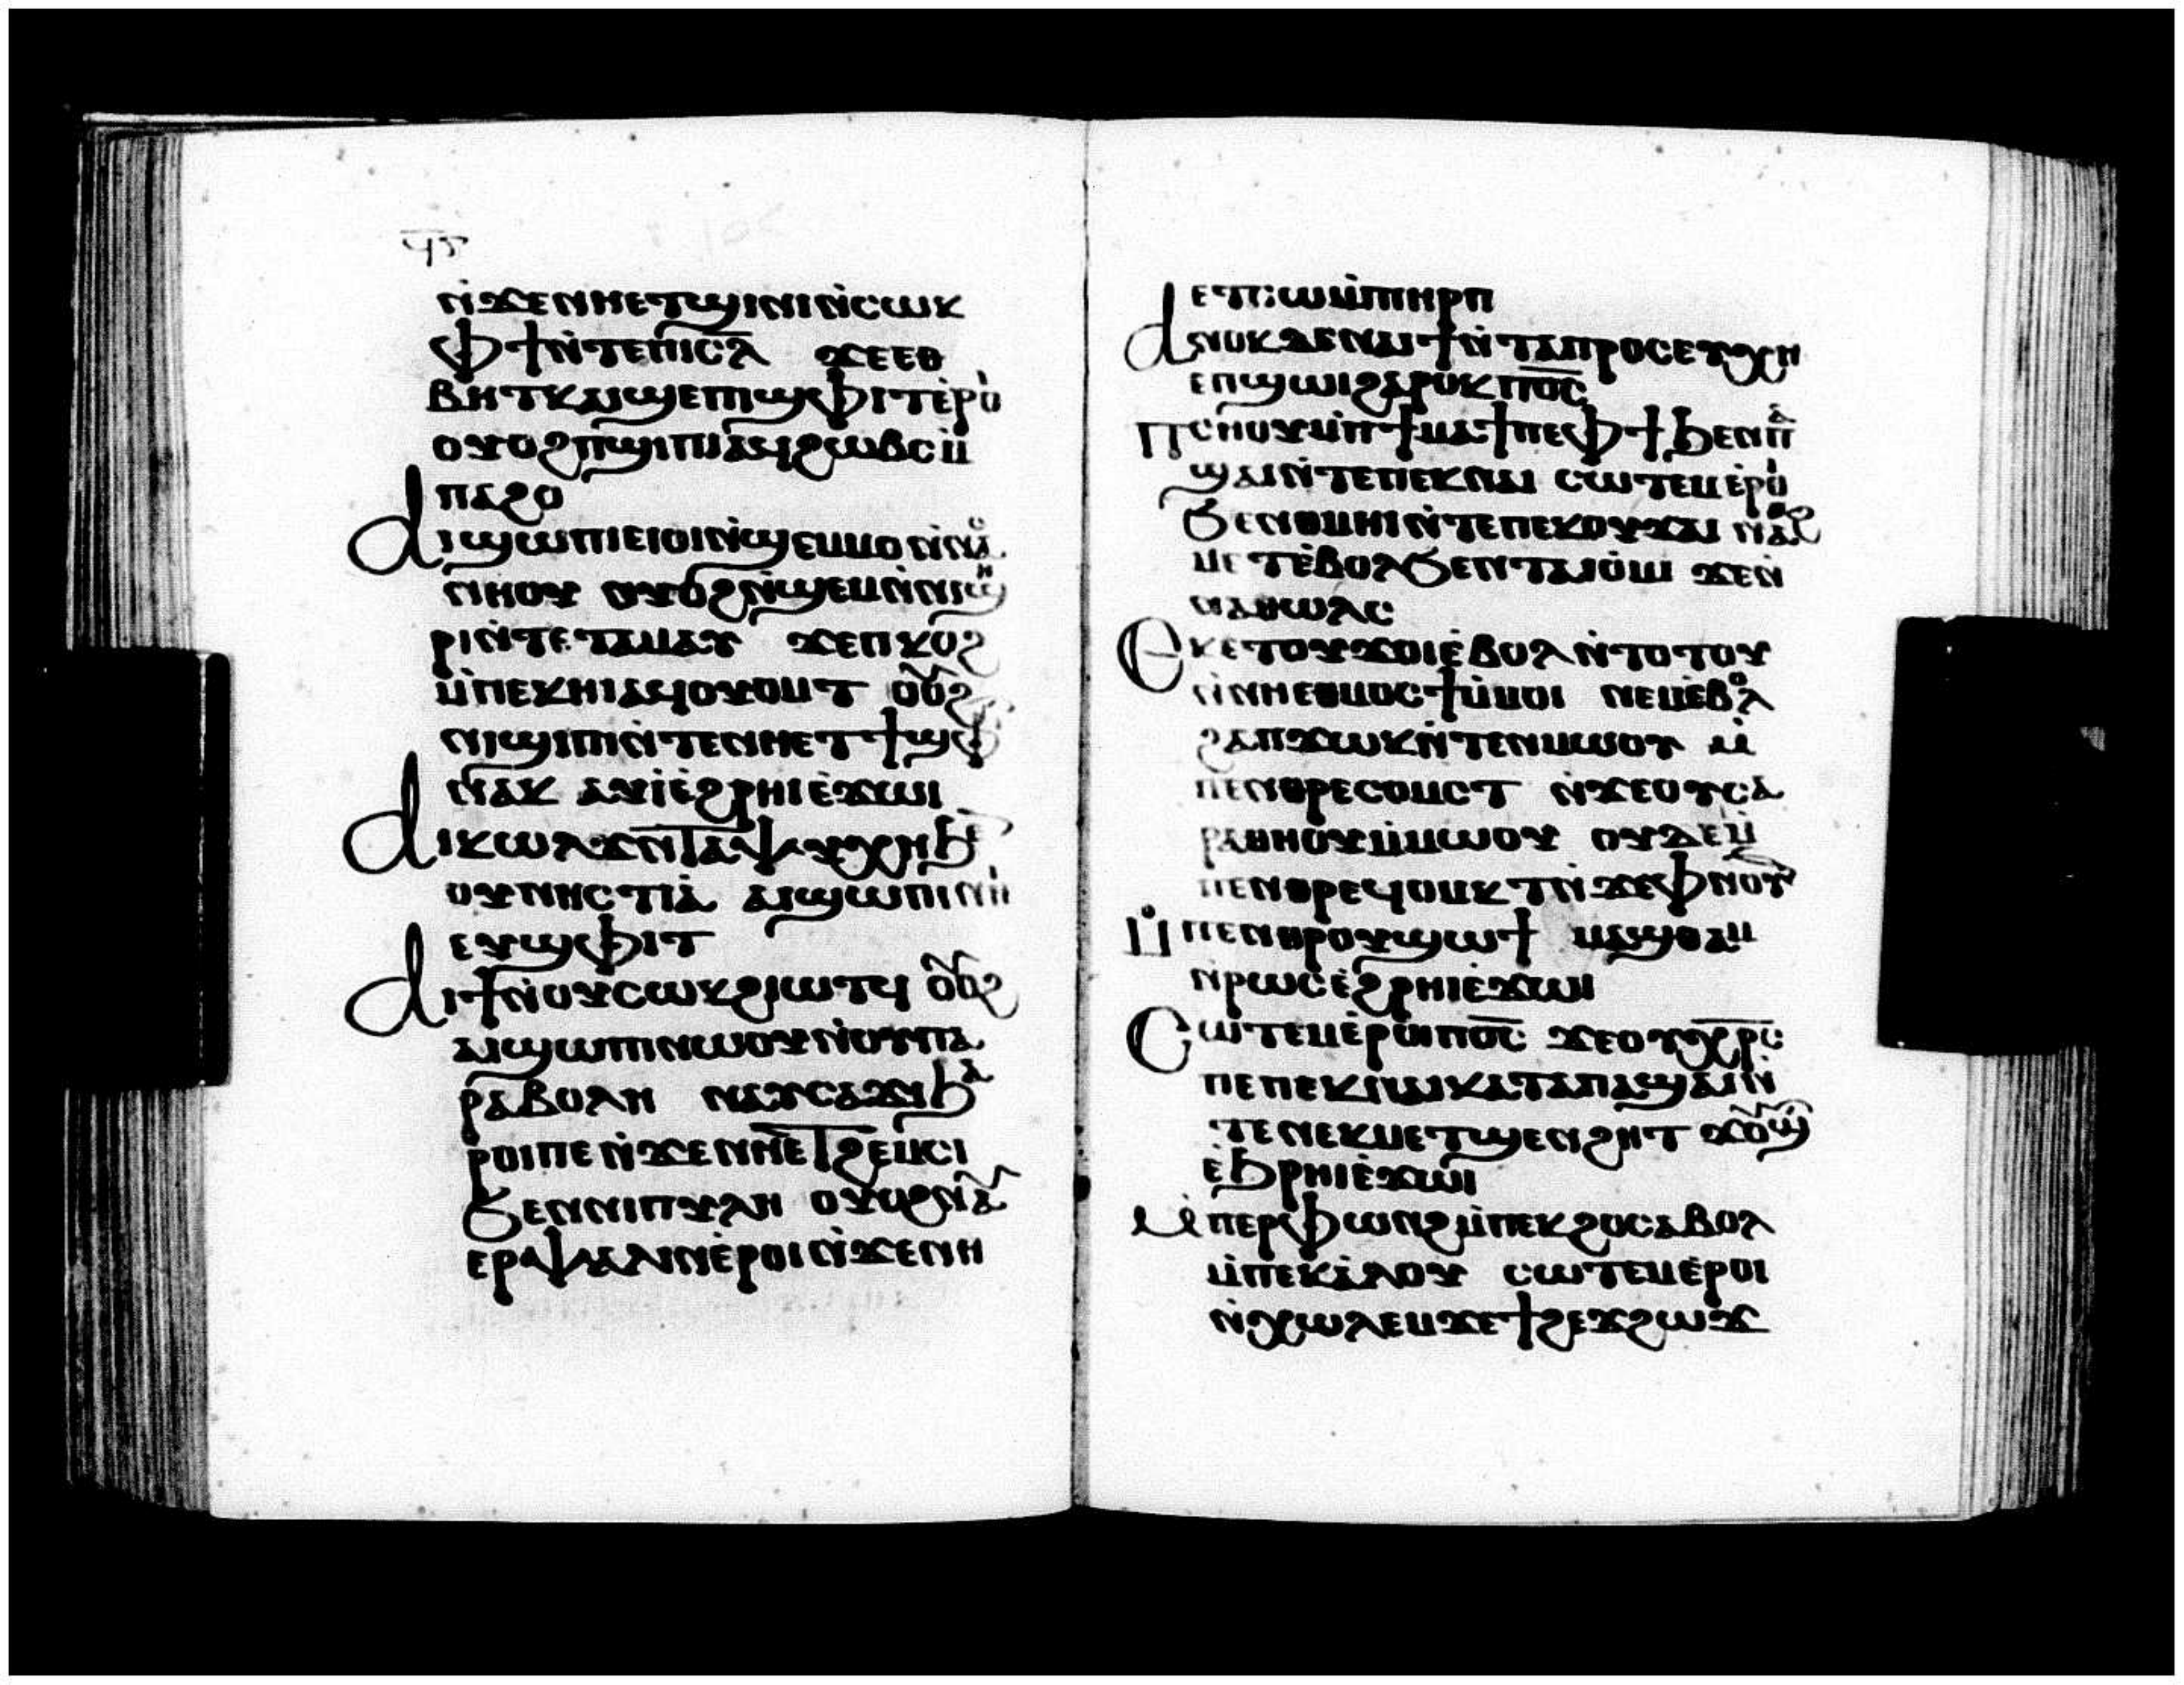 ϥⲋ
ⲛ̀ϫⲉⲛⲏⲉⲧϣⲓⲛⲓⲛ̀ⲥⲱⲕ
ⲫϯⲛ̀ⲧⲉⲡⲓⲥ̅ⲗ̅ ϫⲉⲉⲑ
ⲃⲏⲧⲕⲁⲓϣⲉⲡϣⲫⲓⲧⲉⲣⲟ
ⲟⲩⲟϩⲡϣⲓⲡⲓⲁϥϩⲱⲃⲥⲙ̀
ⲡⲁϩⲟ
ⲁⲓϣⲱⲡⲓⲉⲓⲟⲓⲛ̀ϣⲉⲙⲙⲟⲛ̀ⲛⲁ
ⲥⲛⲏⲟⲩ ⲟⲩⲟϩⲛ̀ϣⲉⲙⲛ̀ⲛⲓϣⲏ
ⲣⲓⲛ̀ⲧⲉⲧⲁⲙⲁⲩ ϫⲉⲡⲭⲟϩ
ⲙ̀ⲡⲉⲕⲏⲓⲁϥⲟⲩⲟⲙⲧ ⲟⲩⲟϩ
ⲛⲓϣⲓⲡⲓⲛ̀ⲧⲉⲛⲏⲉⲧϯϣⲫ
ⲛⲁⲕ ⲁⲩⲓ̀ⲉ̀ϩⲣⲏⲓⲉ̀ϫⲱⲓ
ⲁⲓⲕⲱⲗϫⲛ̀ⲧⲁⲯⲩⲭⲏϧⲉ
ⲟⲩⲛⲏⲥⲧⲓⲁ̀ ⲁⲓϣⲱⲡⲓⲛⲏⲓ
ⲉⲩϣⲫⲓⲧ
ⲁⲓϯⲛ̀ⲟⲩⲥⲱⲕϩⲓⲱⲧϥ ⲟⲩⲟϩ
ⲁⲓϣⲱⲡⲓⲛⲱⲟⲩⲛ̀ⲟⲩⲡⲁ
ⲣⲁⲃⲟⲗⲏ ⲛⲁⲩⲥⲁϫⲓϧⲁ
ⲣⲟⲓⲡⲉⲛ̀ϫⲉⲛⲏⲉⲧϩⲉⲙⲥⲓ
ϧⲉⲛⲛⲓⲡⲩⲗⲏ ⲟⲩⲟϩⲛⲁⲩ
ⲉⲣⲯⲁⲗⲓⲛⲉ̀ⲣⲟⲓⲛ̀ϫⲉⲛⲏ
ⲉⲧⲥⲱⲙ̀ⲡⲏⲣⲡ
ⲁⲛⲟⲕⲇⲉⲛⲁⲓϯⲛ̀ⲧⲁⲡⲣⲟⲥⲉⲩⲭⲏ
ⲉⲡϣⲱⲓϩⲁⲣⲟⲕⲡ︦ⲟ︦ⲥ︦
ⲡⲥⲛⲟⲩⲙ̀ⲡϯⲙⲁϯⲡⲉⲫϯϧⲉⲛⲡⲁ
ϣⲁⲓⲛ̀ⲧⲉⲡⲉⲕⲛⲁⲓ ⲥⲱⲧⲉⲙⲉ̀ⲣⲟ
ϧⲉⲛⲑⲙⲏⲓⲛ̀ⲧⲉⲡⲉⲕⲟⲩϫⲁⲓ ⲛⲁϩ
ⲙⲉⲧⲉ̀ⲃⲟⲗϧⲉⲛⲧⲁⲓⲟ̀ⲙⲓ ϫⲉⲛ̀
ⲛⲁⲑⲱⲗⲥ
ⲉⲕⲉⲧⲟⲩϫⲟⲓⲉ̀ⲃⲟⲗⲛ̀ⲧⲟⲧⲟⲩ
ⲛ̀ⲛⲏⲉⲑⲙⲟⲥϯⲙ̀ⲙⲟⲓ ⲛⲉⲙⲉ̀ⲃⲟⲗ
ϩⲁⲡϫⲱⲕⲛ̀ⲧⲉⲛⲓⲙⲱⲟⲩ ⲙ̀
ⲡⲉⲛⲑⲣⲉⲥⲟⲙⲥⲧ ⲛ̀ϫⲉⲟⲩⲥⲁ
ⲣⲁⲑⲏⲟⲩⲙ̀ⲙⲱⲟⲩ ⲟⲩⲇⲉⲙ̀
ⲡⲉⲛⲑⲣⲉϥⲟⲙⲕⲧⲛ̀ϫⲉⲫⲛⲟⲩⲛ
ⲙ̀ⲡⲉⲛⲑⲣⲟⲩϣⲱϯ ⲙⲁϣⲑⲁⲙ
ⲛ̀ⲣⲱⲥⲉ̀ϩⲣⲏⲓⲉ̀ϫⲱⲓ
ⲥⲱⲧⲉⲙⲉ̀ⲣⲟⲓⲡ︦ⲟ︦ⲥ︦ ϫⲉⲟⲩⲭ︦ⲣ︦ⲥ︦
ⲡⲉⲡⲉⲕⲛⲁⲓⲕⲁⲧⲁⲡⲁϣⲁⲓⲛ̀
ⲧⲉⲛⲉⲕⲙⲉⲧϣⲉⲛϩⲏⲧ ϫⲟⲩϣⲧ
ⲉϧⲣⲏⲓⲉ̀ϫⲱⲓ
ⲙ̀ⲡⲉⲣⲫⲱⲛϩⲙ̀ⲡⲉⲕϩⲟⲥⲁⲃⲟⲗ
ⲙ̀ⲡⲉⲕⲁ̀ⲗⲟⲩ ⲥⲱⲧⲉⲙⲉ̀ⲣⲟⲓ
ⲛ̀ⲭⲱⲗⲉⲙϫⲉϯϩⲉϫϩⲱϫ